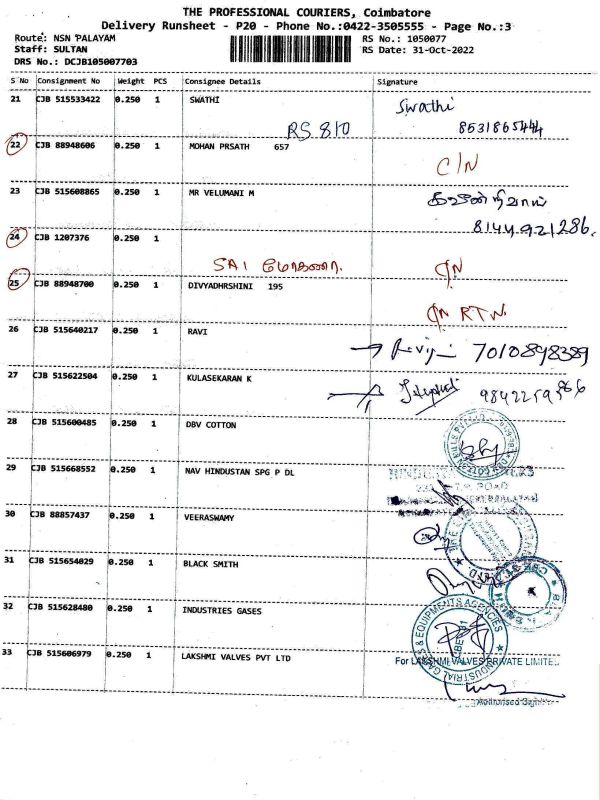 THE PROFESSIONAL COURIERS, Coimbatore
Delivery Runsheet - P20 - Phone No.:0422-3505555 - Page No.:3
Route: NSN PALAYAM RS No.: 1050077
Staff: SULTAN RS Date: 31-Oct-2022
DRS No.: DCJB105007703
S No Consignment No Weight PCS Consignee Details Signature
21 CJB 515533422 0.250 1 SWATHI Swathi
RS 810 8531865444
22 CJB 88948606 0.250 1 MOHAN PRSATH 657
C/N
23 CJB 515608865 0.250 1 MR VELUMANI M
8144921286.
24 CJB 1207376 0.250 1
SAI மோகனா. C/N
25 CJB 88948700 0.250 1 DIVYADHRSHINI 195
C/N RTN.
26 CJB 515640217 0.250 1 RAVI
7010898389
27 CJB 515622504 0.250 1 KULASEKARAN K
28 CJB 515600485 0.250 1 DBV COTTON
29 CJB 515668552 0.250 1 NAV HINDUSTAN SPG P DL
30 CJB 88857437 0.250 1 VEERASWAMY
31 CJB 515654029 0.250 1 BLACK SMITH
32 CJB 515628480 0.250 1 INDUSTRIES GASES
INDUSTRIAL GASES & EQUIPMENTS AGENCIES
33 CJB 515606979 0.250 1 LAKSHMI VALVES PVT LTD
For LAKSHMI VALVES PRIVATE LIMITED
Authorised